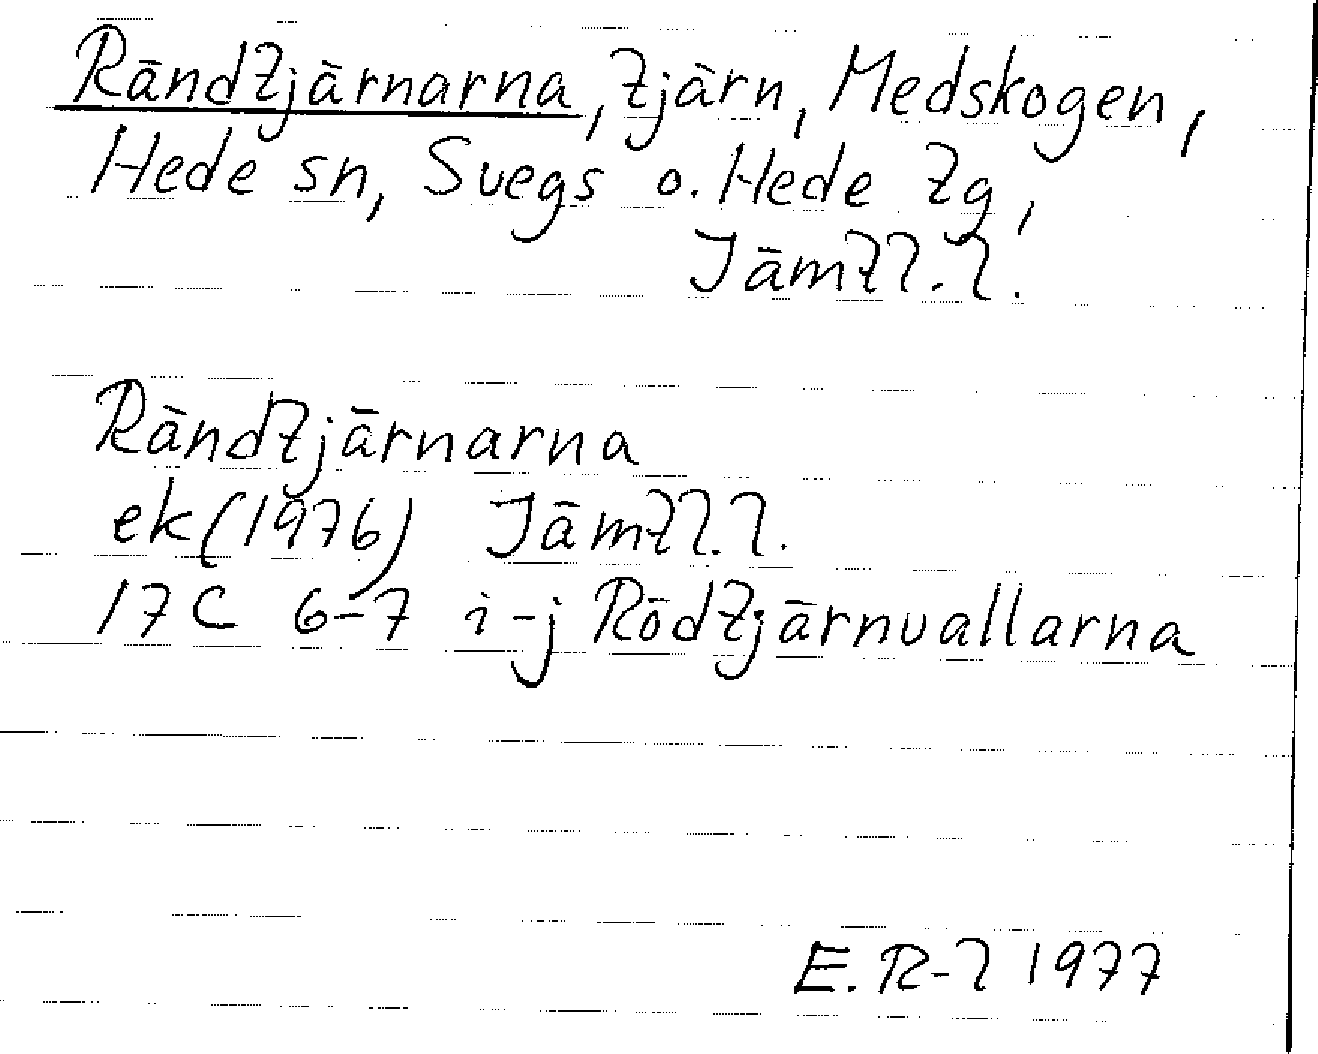 Rändtjärnarna, tjärn, Medskogen,
Hede sn, Svegs o. Hede tg,
Jämtl. l.
Rändtjärnarna
ek (1976) Jämtl. l.
17C 6-7 i-j Rödtjärnvallarna
E. R-l 1977